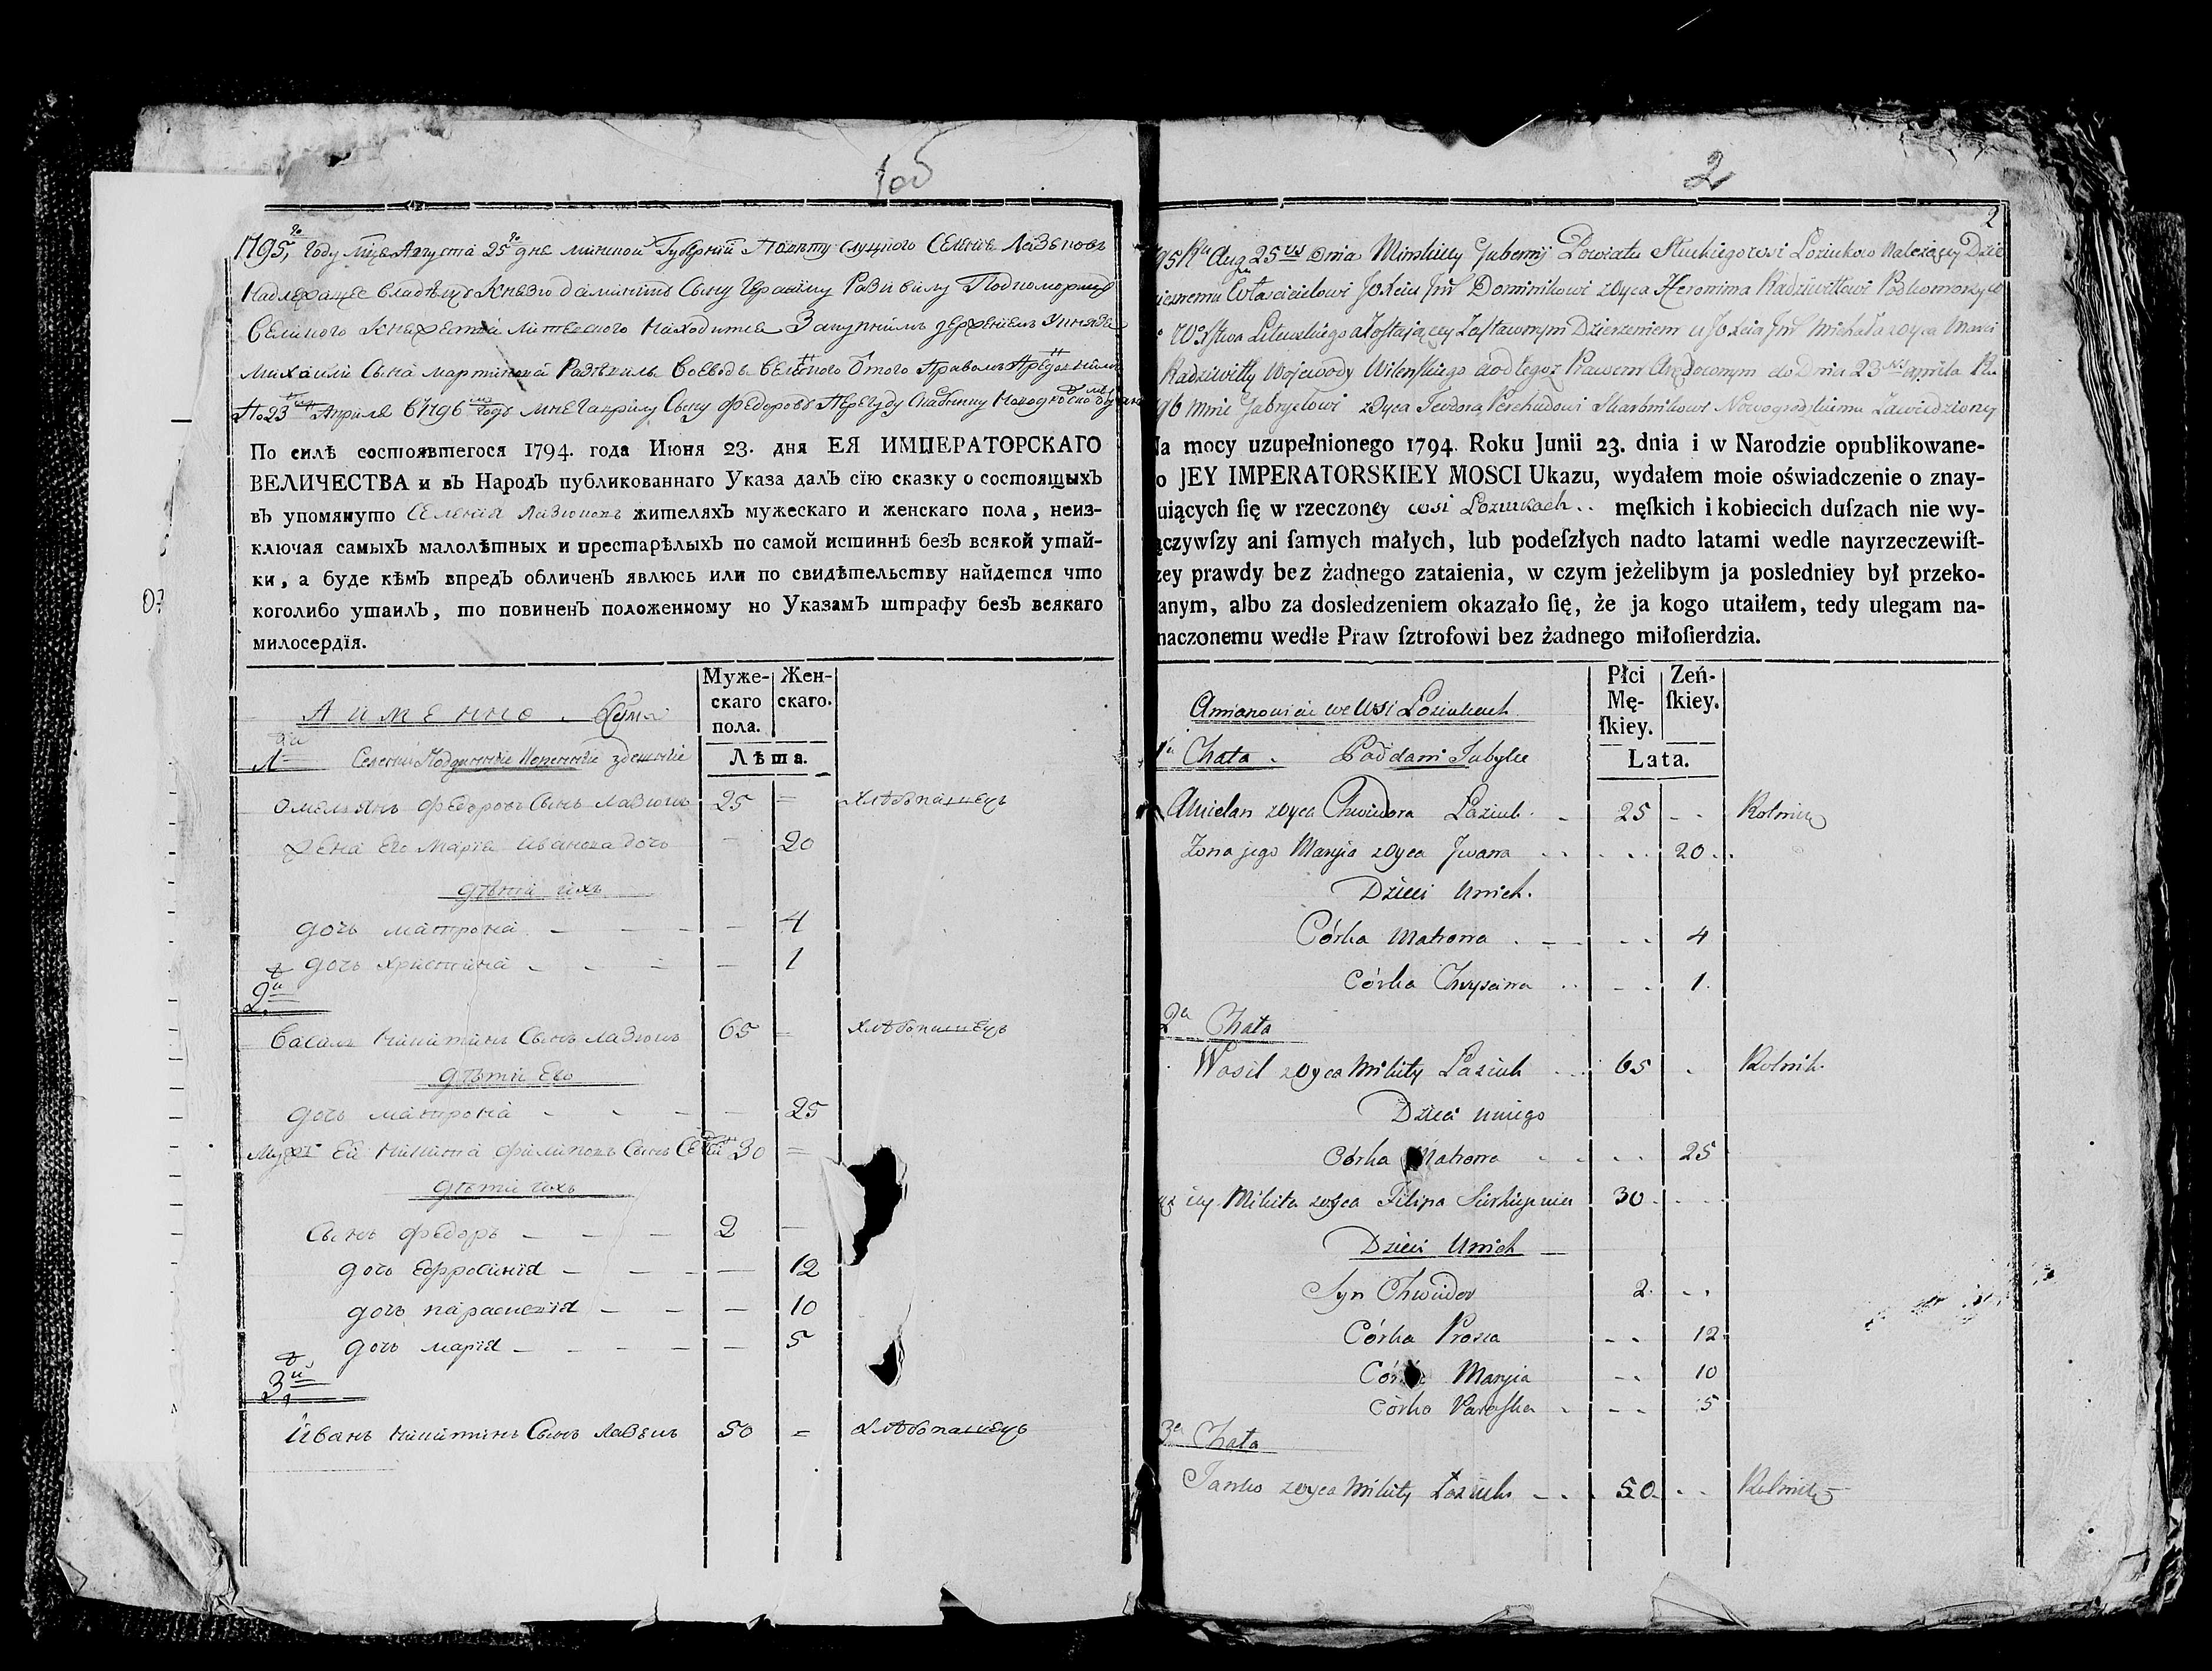 2
2
1795, году Мца Августа 25 дня Минской Губернии Повѣту Слуцкого Селенiе Лазюковъ
Надлежащее владѣнiю Князю Доминику Сыну Геронiму Радзивилу Подкоморию
Великого Княжества Литовского Находится
Михаила Сына Мартинова Радзивила Воеводы Виленского Оного Правомъ
По 23 Априля 1796 года мне Гаврилу Сыну Федорову Перегуду Скарбнику
По силѣ состоявшегося 1794. года Июня 23. дня ЕЯ ИМПЕРАТОРСКАГО
ВЕЛИЧЕСТВА и въ Народъ публикованнаго Указа далъ сiю сказку о состоящыхъ
въ упомянуто Селенiи Лазюкахъ жителяхъ мужескаго и женскаго пола, неиз-
ключая самыхъ малолѣтныхъ и престарѣлыхъ по самой истиннѣ безъ всякой утай-
ки, а буде кѣмъ впредъ обличенъ явлюсь или по свидѣтельству найдется что
коголибо утаилъ, то повиненъ положенному но Указамъ штрафу безъ всякаго
милосердїя.
Муже-скаго пола. Жен-скаго.
А именно
Лѣта.
Омельянъ Федоровъ Сынъ Лазюкъ 25 = хлѣбопашецъ
Жена Его Марiя Иванова дочь — 20
дѣти ихъ
дочь Матрона — 4
дочь Христина — 1
2я
Василь Никитинъ Сынъ Лазюкъ 65 = хлѣбопашецъ
дѣти Его
дочь Матрона — 25
Мужъ Ей Никита Филиповъ Сынъ 30 =
дѣти ихъ
Сынъ Федоръ 2 —
дочь Ефросинiя — 12
дочь Параскевiя — 10
дочь Марiя — 5
3я
Иванъ Никитинъ Сынъ Лазюкъ 50 = хлѣбопашецъ
95 Ru Aug 25 Dnia Minskiey Gubernij Powiatu Sluckiego wsi Loziukow Należącey Dzie
icznemu Właścicielowi JO Xciu Jmć Dominikowi zoyca Hieronima Radziwiłłowi Podkomorzyć
Litewskiego a zostającey Zastawnym Dzierżeniem u JO Xcia Jmć Michała zoyca
Radziwiłły Wojewody Wilenskiego a od tegoż Prawem Arędownym do Dnia 23 Aprila Ru
96 mnie Gabryelowi zoyca Teodora Perehudowi Skarbnikowi Nowogrodzkiemu Zawiedzioney
Na mocy uzupełnionego 1794. Roku Junii 23. dnia i w Narodzie opublikowane-
o JEY IMPERATORSKIEY MOSCI Ukazu, wydałem moie oświadczenie o znay-
uiących ſię w rzeczoney wsi Loziukach .. męſkich i kobiecich duſzach nie wy-
ączywſzy ani ſamych małych, lub podeſzłych nadto latami wedle nayrzeczewiſt-
zey prawdy bez żadnego zataienia, w czym jeżelibym ja posledniey był przeko-
anym, albo za dosledzeniem okazało ſię, że ja kogo utaiłem, tedy ulegam na-
naczonemu wedle Praw ſztrofowi bez żadnego miłoſierdzia.
Płci Mę-ſkiey. Zeń-ſkiey.
Amianowicie we Wsi Loziukach
Lata.
1a Chata . Poddani Tubylce
Amielan zoyca Chwiedora Laziuk 25 - - Rolnik
Zona jego Maryia zoyca Jwana 20
Dzieci Unich.
Córka Matrona 4
Córka Chrysina 1
2a Chata
Wasil zoyca Mikity Laziuk 65 Rolnik
Dzieci uniego
Córka Matrona 25
ąż iey Mikita zoyca Filipa 30
Dzieci Unich
Syn Chwiedor 2
Córka Prosia 12
Córka Maryia 10
Córka Paraska 5
3a Chata
Janko zoyca Mikity Łaziuk 50 Rolnik